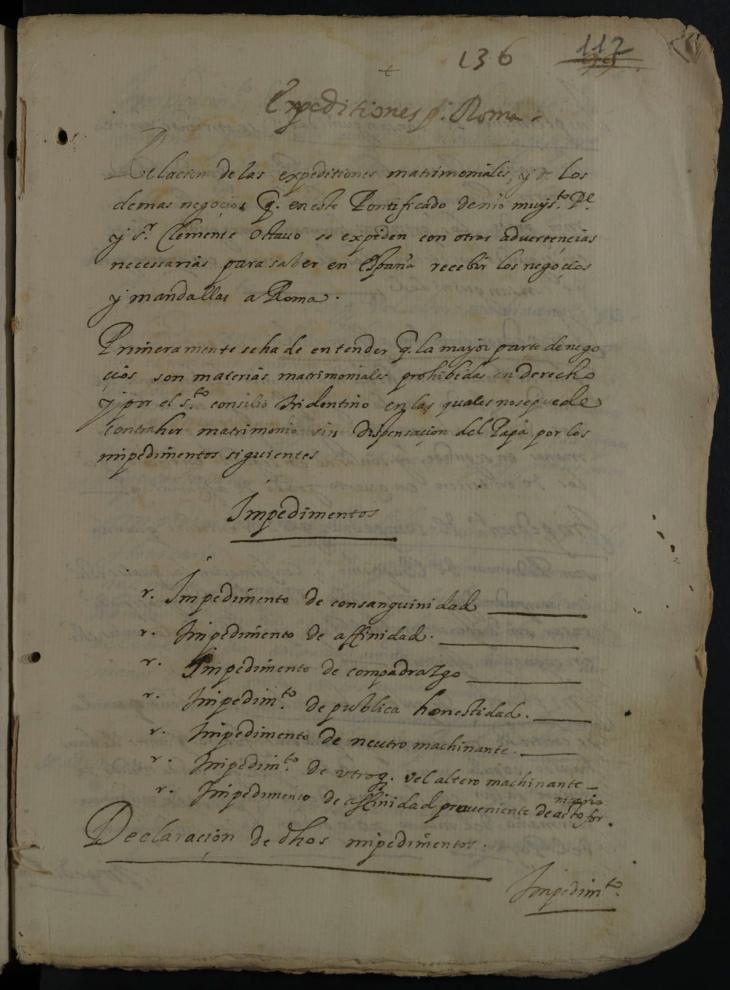 136 117
+
Expeditiones pª. Roma.
Relacion de las expeditiones matrimoniales, y de los
demas negoçios q̃. en este Pontificado de nro muy s.to P.e
y s.r Clemente Octauo se expiden con otras aduertençias
necessarias para saber en España recebir los negoçios
y mandallas a Roma.
Primeramente se ha de entender q̃. la mayor parte de nego
çios son materias matrimoniales prohibidas en derecho
y por el s.to consilio tridentino en las quales no se puede
contraher matrimonio sin dispensaçion del Papa por los
impedimentos siguientes
Impedimentos
r. Impedimento de consanguinidad
r. Impedimento de affinidad.
r. Impedimento de compadrazgo
r. Impedim.to de publica honestidad.
r. Impedimento de neutro machinante.
r. Impedim.to de vtroq̃. vel altero machinante
r. Impedimento de affinidad proueniente de acto for.
nicario
Declaraçion de dhos impedimentos.
Impedim.to